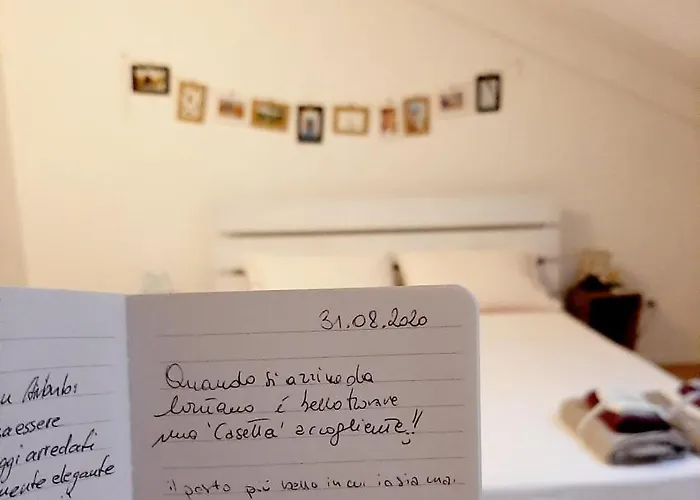 31.08.2020
Quando si arriva da
lontano é bello trovare
una 'Casetta' accogliente!!
il posto più bello in cui io sia mai
essere
ggi arredati
mente elegante